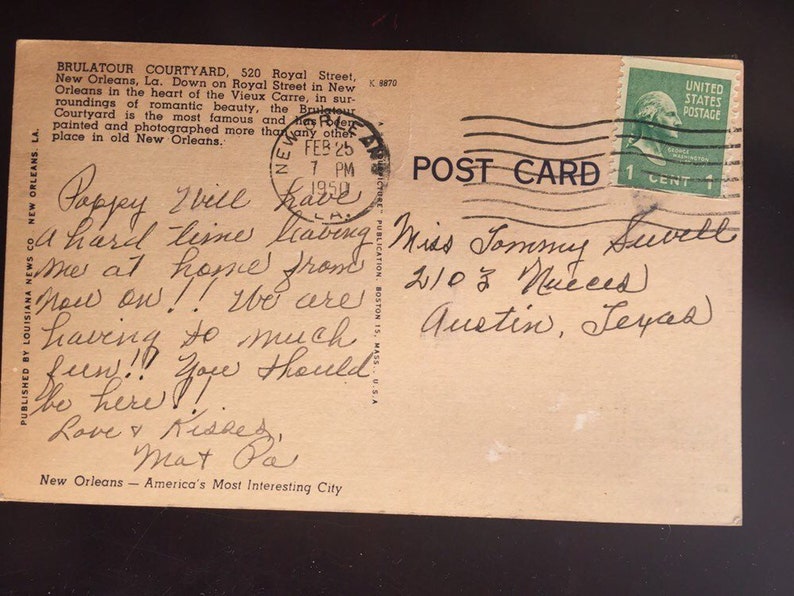 BRULATOUR COURTYARD, 520 Royal Street,
New Orleans, La. Down on Royal Street in New
Orleans in the heart of the Vieux Carre, in sur-
roundings of romantic beauty, the Brulatour
Courtyard is the most famous and has been
painted and photographed more than any other
place in old New Orleans.
K 8870
PUBLISHED BY LOUISIANA NEWS CO. NEW ORLEANS, LA.
Poppy Will have
a hard time having
me at home from
now on!! We are
having so much
fun!! You should
be here!!
Love & Kisses,
Ma & Pa
New Orleans — America's Most Interesting City
NEW ORLEANS
FEB 25
7 PM
1950
LA.
PICTURE" PUBLICATION, BOSTON 15, MASS., U.S.A
POST CARD
UNITED
STATES
POSTAGE
GEORGE
WASHINGTON
1 CENT 1
Miss Tommy Sewell
2103 Nueces
Austin, Texas